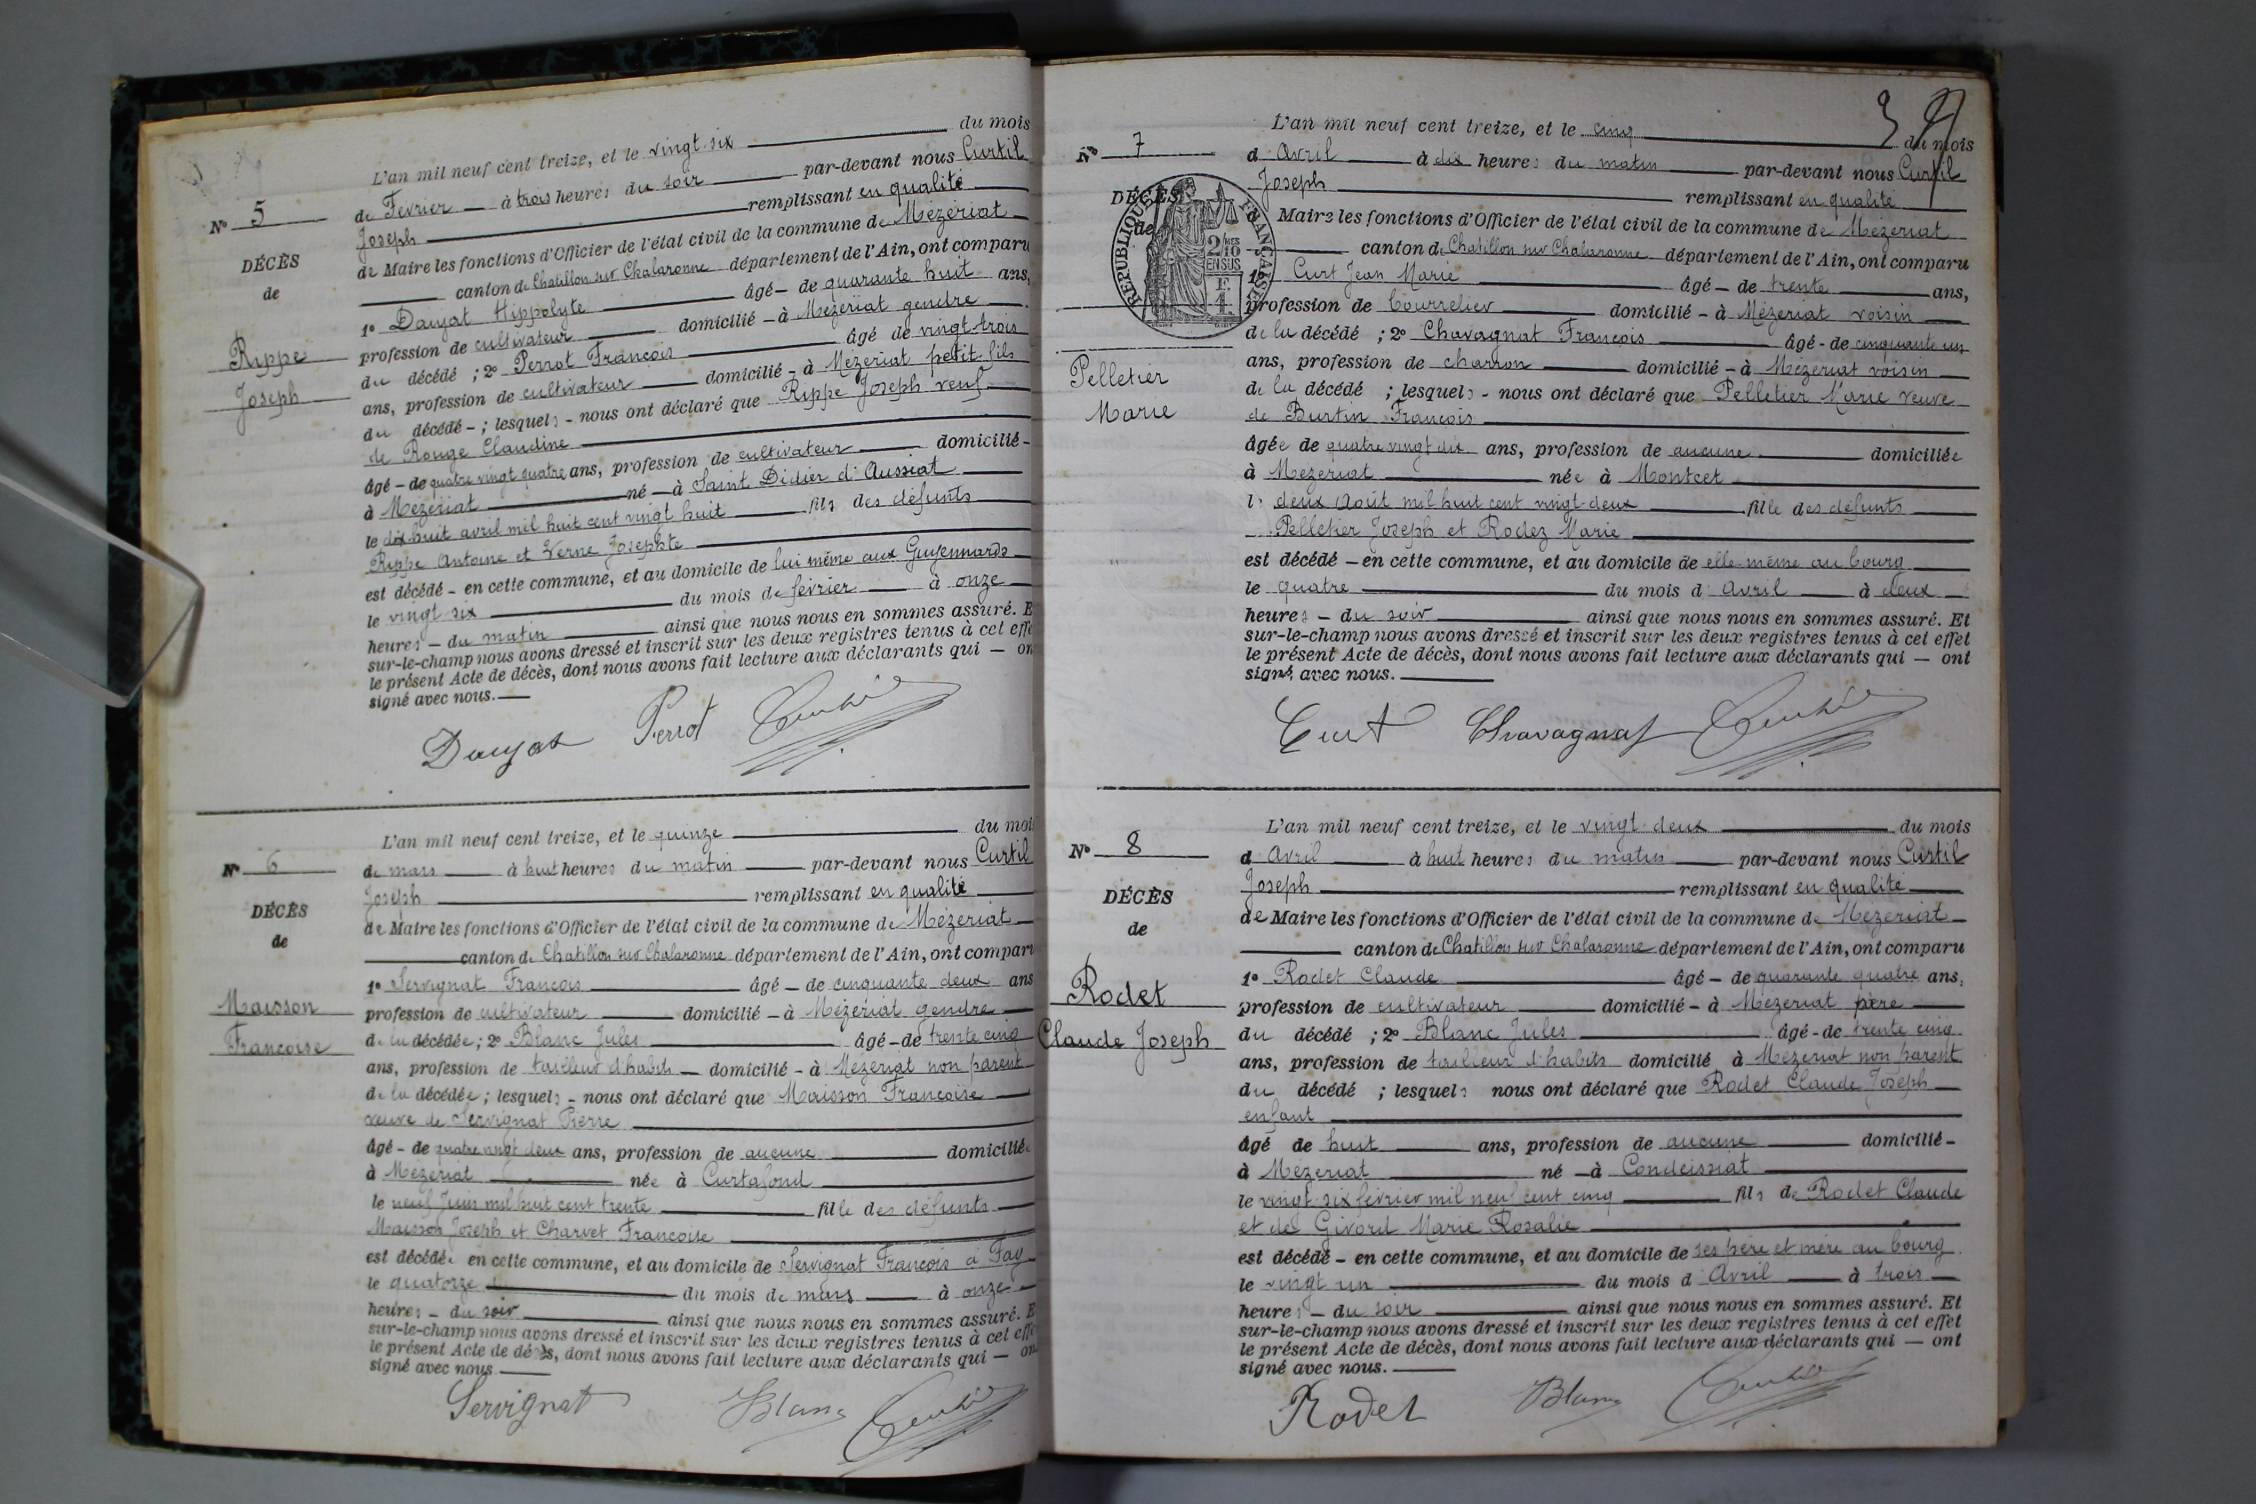 L'an mil neuf cent treize, et le vingt-six du mois
Nº 5
de Février à trois heures du soir par-devant nous Curtil
Joseph remplissant en qualité
DÉCÈS
de Maire les fonctions d'Officier de l'état civil de la commune de Mézériat
de
canton de Chatillon sur Chalaronne département de l'Ain, ont comparu
1º Danjat Hippolyte âgé - de quarante huit ans,
Rippe
profession de cultivateur domicilié - à Mézériat gendre
Joseph
du décédé ; 2º Perrot François âgé de vingt trois
ans, profession de cultivateur domicilié - à Mézériat petit fils
du décédé - ; lesquels - nous ont déclaré que Rippe Joseph veuf
de Rouge Claudine
âgé - de quatre vingt quatre ans, profession de cultivateur domicilié -
à Mézériat né - à Saint Didier d'Aussiat
le dix huit avril mil huit cent vingt huit fils des défunts
Rippe Antoine et Verne Josephte
est décédé - en cette commune, et au domicile de lui même aux Guyennards
le vingt six du mois de février à onze
heures - du matin ainsi que nous nous en sommes assuré. E
sur-le-champ nous avons dressé et inscrit sur les deux registres tenus à cet effe
le présent Acte de décès, dont nous avons fait lecture aux déclarants qui — on
signé avec nous.
Danjat Perrot Curtil
L'an mil neuf cent treize, et le quinze du moi
Nº 6
de mars à huit heures du matin par-devant nous Curtil
Joseph remplissant en qualité
DÉCÈS
de Maire les fonctions d'Officier de l'état civil de la commune de Mézériat
de
canton de Chatillon sur Chalaronne département de l'Ain, ont compar
1º Servignat François âgé - de cinquante deux ans
Maisson
profession de cultivateur domicilié - à Mézériat gendre
Françoise
de la décédée ; 2º Blanc Jules âgé - de trente cinq
ans, profession de tailleur d'habits domicilié - à Mézériat non parent
de la décédée ; lesquels - nous ont déclaré que Maisson Françoise
veuve de Servignat Pierre
âgé - de quatre vingt deux ans, profession de aucune domiciliée
à Mézériat née à Curtafond
le neuf Juin mil huit cent trente fille des défunts
Maisson Joseph et Charvet Françoise
est décédée en cette commune, et au domicile de Servignat François à Fay
le quatorze du mois de mars à onze
heures - du soir ainsi que nous nous en sommes assuré. E
sur-le-champ nous avons dressé et inscrit sur les deux registres tenus à cet effe
le présent Acte de décès, dont nous avons fait lecture aux déclarants qui — on
signé avec nous.
Servignat Blanc Curtil
3
L'an mil neuf cent treize, et le cinq du mois
Nº 7
d Avril à dix heures du matin par-devant nous Curtil
Joseph remplissant en qualité
DÉCÈS
de
RÉPUBLIQUE FRANÇAISE
2/10 EN SUS
1 F.
Maire les fonctions d'Officier de l'état civil de la commune de Mézériat
canton de Chatillon sur Chalaronne département de l'Ain, ont comparu
1º Curt Jean Marie âgé - de trente ans,
profession de Bourrelier domicilié - à Mézériat voisin
de la décédé ; 2º Chavagnat François âgé - de cinquante un
Pelletier
ans, profession de charron domicilié - à Mézériat voisin
Marie
de la décédé ; lesquels - nous ont déclaré que Pelletier Marie veuve
de Burtin François
âgée de quatre vingt dix ans, profession de aucune domiciliée
à Mézériat née à Montcet
le deux Août mil huit cent vingt-deux fille des défunts
Pelletier Joseph et Rodez Marie
est décédé - en cette commune, et au domicile de elle-même au bourg
le quatre du mois d Avril à deux
heures - du soir ainsi que nous nous en sommes assuré. Et
sur-le-champ nous avons dressé et inscrit sur les deux registres tenus à cet effet
le présent Acte de décès, dont nous avons fait lecture aux déclarants qui — ont
signé avec nous.
Curt Chavagnat Curtil
L'an mil neuf cent treize, et le vingt-deux du mois
Nº 8
d Avril à huit heures du matin par-devant nous Curtil
Joseph remplissant en qualité
DÉCÈS
de Maire les fonctions d'Officier de l'état civil de la commune de Mézériat
de
canton de Chatillon sur Chalaronne département de l'Ain, ont comparu
1º Rodet Claude âgé - de quarante quatre ans,
Rodet
profession de cultivateur domicilié - à Mézériat père
Claude Joseph
du décédé ; 2º Blanc Jules âgé - de trente cinq
ans, profession de tailleur d'habits domicilié à Mézériat non parent
du décédé ; lesquels nous ont déclaré que Rodet Claude Joseph
enfant
âgé de huit ans, profession de aucune domicilié -
à Mézériat né - à Condeissiat
le vingt-six février mil neuf cent cinq fils de Rodet Claude
et de Givord Marie Rosalie
est décédé - en cette commune, et au domicile de ses père et mère au bourg
le vingt un du mois d Avril à trois
heures - du soir ainsi que nous nous en sommes assuré. Et
sur-le-champ nous avons dressé et inscrit sur les deux registres tenus à cet effet
le présent Acte de décès, dont nous avons fait lecture aux déclarants qui — ont
signé avec nous.
Rodet Blanc Curtil